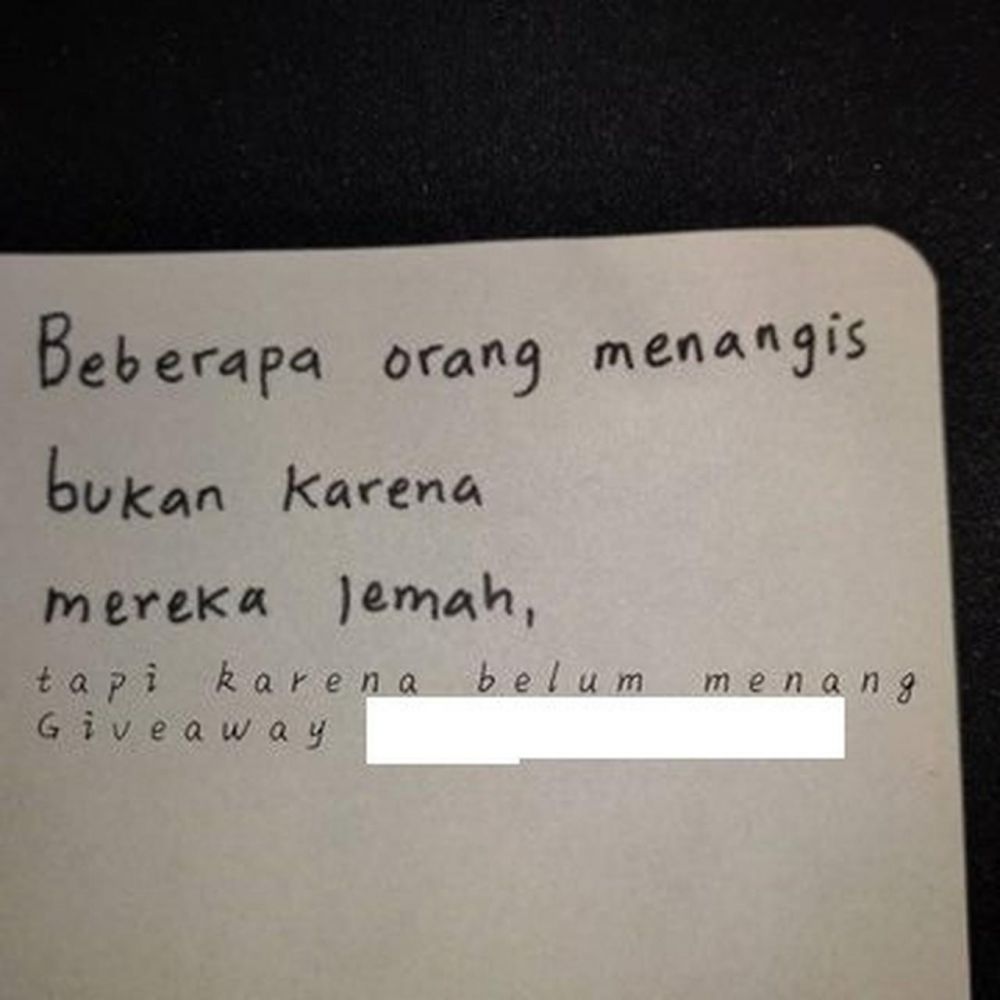 Beberapa orang menangis
bukan karena
mereka lemah,
tapi karena belum menang
Giveaway